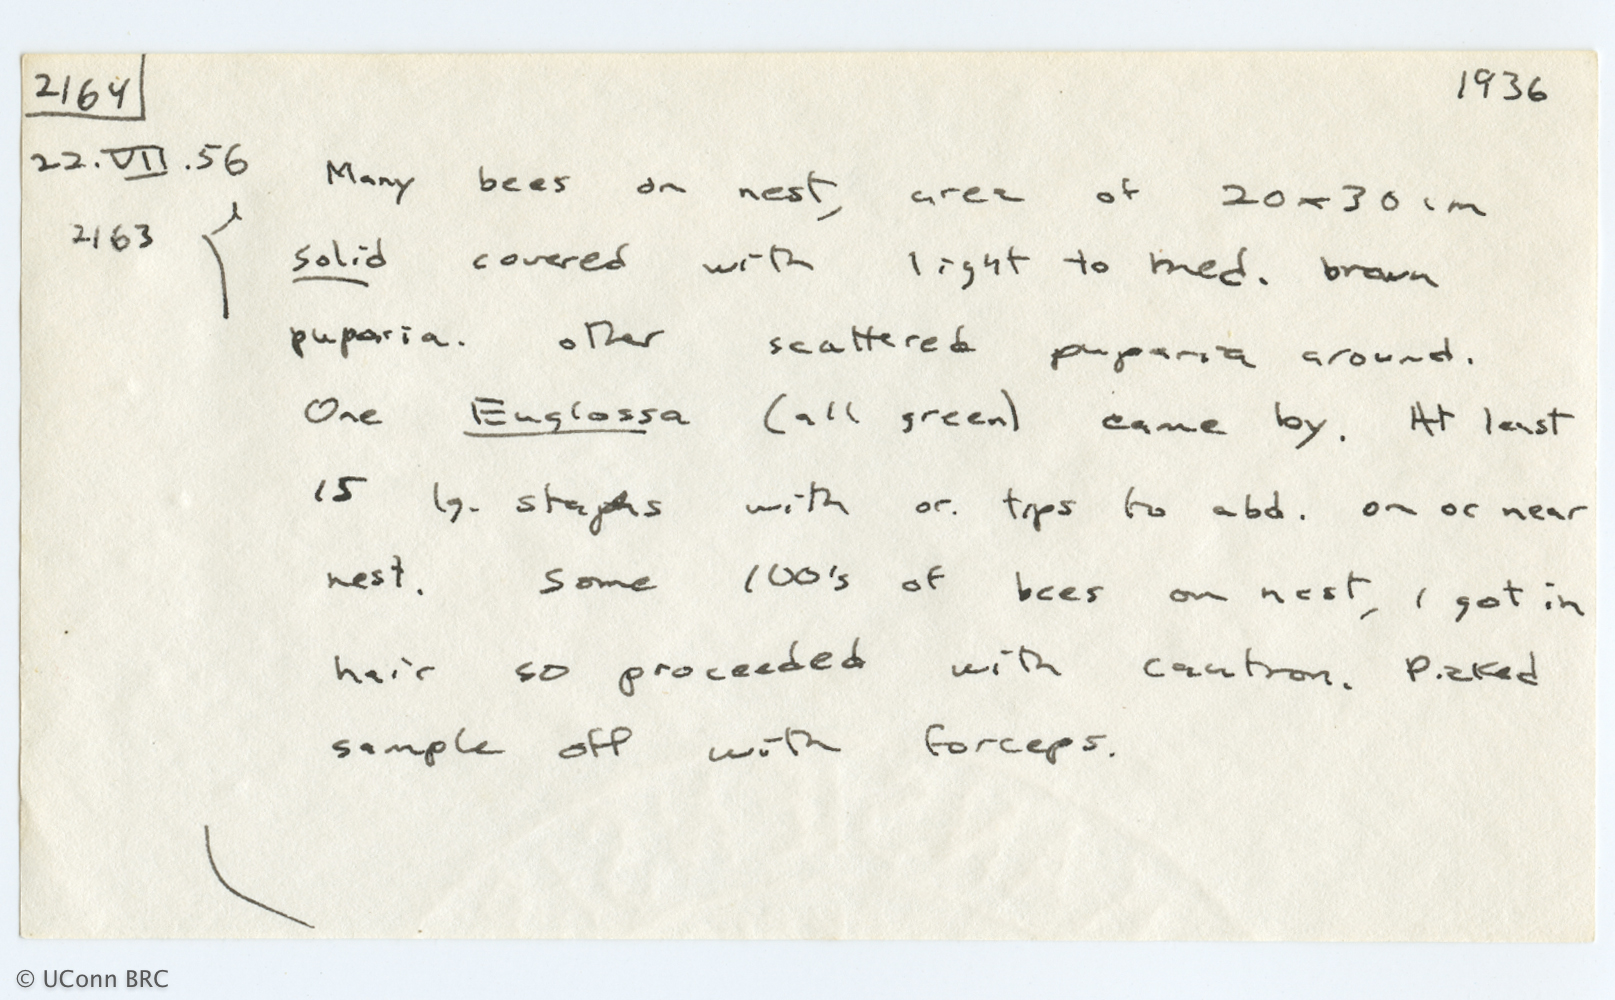 2164
1936
22.VII.56
2163
Many bees on nest, area of 20x30 cm
solid covered with light to med. brown
puparia. other scattered puparia around.
One Euglossa (all green) came by. At least
15 lg. staphs with or. tips to abd. on or near
nest. Some 100's of bees on nest, I got in
hair so proceeded with caution. Picked
sample off with forceps.
© UConn BRC